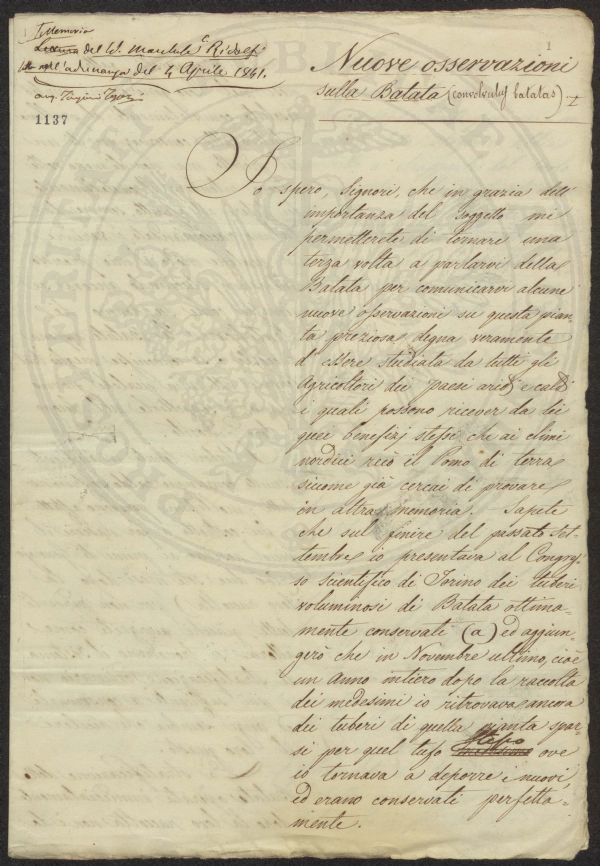 Memoria
Lettura del Sr. Marchese C. Ridolfi
letta nell'adunanza del 4 Aprile 1841.
1137
1
Nuove osservazioni
sulla Batata (convolvulus batatas)
Io spero, Signori, che in grazia dell'
importanza del soggetto mi
permetterete di tornare una
terza volta a parlarvi della
Batata per comunicarvi alcune
nuove osservazioni su questa pian-
ta preziosa, degna veramente
d'essere studiata da tutti gli
Agricoltori dei paesi aridi e caldi
i quali possono ricever da lei
quei benefizj stessi che ai climi
nordici recò il Pomo di terra
siccome già cercai di provare
in altra memoria. Sapete
che sul finire del passato Set-
tembre io presentava al Congres-
so scientifico di Torino dei tuberi
voluminosi di Batata ottima-
mente conservati (a) ed aggiun-
gerò che in Novembre ultimo, cioè
un Anno intiero dopo la raccolta
dei medesimi io ritrovava ancora
dei tuberi di quella pianta spar-
si per quel tufo stesso ove
io tornava a deporre i nuovi,
ed erano conservati perfetta-
mente.